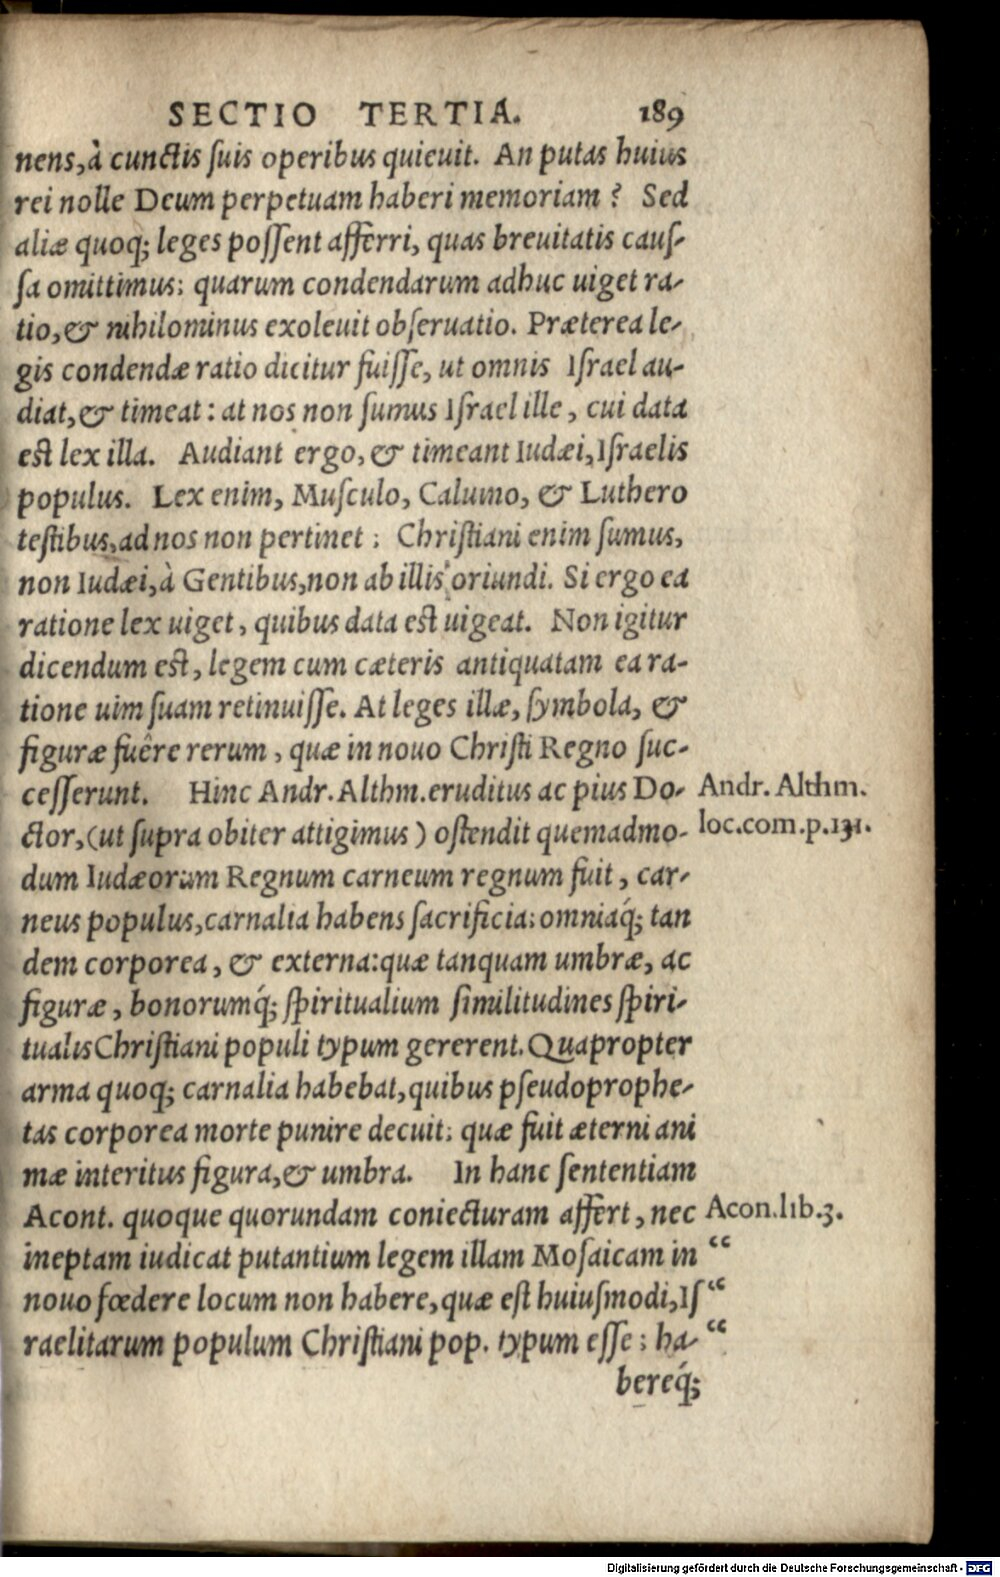 SECTIO TERTIA. 189
nens, à cunctis ſuis operibus quieuit. An putas huius
rei nolle Deum perpetuam haberi memoriam? Sed
aliæ quoq; leges poſſent afferri, quas breuitatis cauſ-
ſa omittimus: quarum condendarum adhuc uiget ra-
tio, & nihilominus exoleuit obſeruatio. Præterea le-
gis condendæ ratio dicitur fuiſſe, ut omnis Iſrael au-
diat, & timeat: at nos non ſumus Iſrael ille, cui data
est lex illa. Audiant ergo, & timeant Iudæi, Iſraelis
populus. Lex enim, Muſculo, Caluino, & Luthero
teſtibus, ad nos non pertinet: Chriſtiani enim ſumus,
non Iudæi, à Gentibus, non ab illis oriundi. Si ergo ea
ratione lex uiget, quibus data est uigeat. Non igitur
dicendum est, legem cum cæteris antiquatam ea ra-
tione uim ſuam retinuiſſe. At leges illæ, ſymbola, &
figuræ fuêre rerum, quæ in nouo Chriſti Regno ſuc-
ceſſerunt. Hinc Andr. Althm. eruditus ac pius Do- Andr. Althm.
ctor, (ut ſupra obiter attigimus) oſtendit quemadmo- loc.com.p.131.
dum Iudæorum Regnum carneum regnum fuit, car-
neus populus, carnalia habens ſacrificia: omniaq́; tan
dem corporea, & externa: quæ tanquam umbræ, ac
figuræ, bonorumq́; ſpiritualium ſimilitudines ſpiri-
tualis Chriſtiani populi typum gererent. Quapropter
arma quoq; carnalia habebat, quibus pſeudoprophe-
tas corporea morte punire decuit: quæ fuit æterni ani
mæ interitus figura, & umbra. In hanc ſententiam
Acont. quoque quorundam coniecturam affert, nec Acon.lib.3.
ineptam iudicat putantium legem illam Moſaicam in “
nouo fœdere locum non habere, quæ est huiuſmodi, Iſ “
raelitarum populum Chriſtiani pop. typum eſſe: ha- “
bereq́;
Digitalisierung gefördert durch die Deutsche Forschungsgemeinschaft - DFG